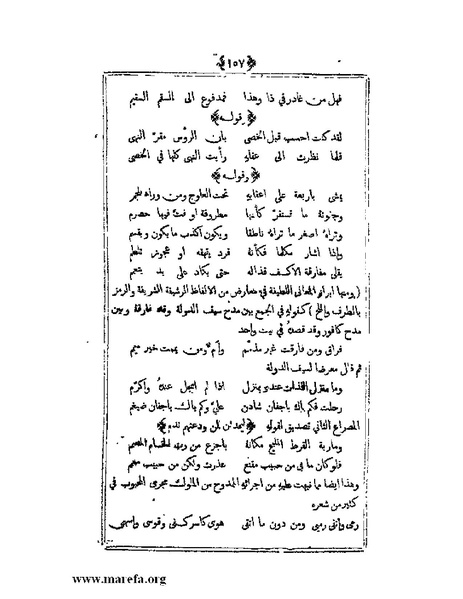 ﴿١٥٧﴾
فهل من عاذر في ذا وهذا فمدفوع الى السقم السقيم
﴿ وقوله ﴾
لقد كنت احسب قبل الخصى بان الرؤس مقر النهى
فلما نظرت الى عقله رأيت النهى كلها في الخصى
﴿ وقوله ﴾
يمشى باربعة على اعقابه تحت العلوج ومن وراء يلجم
وجفونه ما تستقر كأنها مطروفة او فت فيها حصرم
وتراه اصغر ما تراه ناطقا ويكون اكذب ما يكون ويقسم
واذا اشار مكلما فكأنه قرد يقهقه او عجوز تلطم
يقلى مفارقة الاكف قذاله حتى يكاد على يد يتعمم
( ومنها ابراز المعانى اللطيفة في معارض من الالفاظ الرشيقة الشريفة والرمز
بالظرف والملح ) كقوله في الجمع بين مدح سيف الدولة وقد فارقه وبين
مدح كافور وقد قصده في بيت واحد
فراق ومن فارقت غير مذمم وأم ومن يممت خير ميمم
ثم قال معرضا لسيف الدولة
وما منزل اللذات عندى بمنزل اذا لم ابجل عنده واكرم
رحلت فكم باك باجفان شادن على وكم باك باجفان ضيغم
المصراع الثاني تصديق لقوله ﴿ ليحدثن لمن ودعتهم ندم ﴾
وما ربة القرط المليح مكانه باجزع من رب الحسام المصمم
فلو كان ما بى من حبيب مقنع عذرت ولكن من حبيب معمم
وهذا ايضا مما نبهت عليه من اجرائه الممدوح من الملوك مجرى المحبوب في
كثير من شعره
رمى واتقى رميى ومن دون ما اتقى هوى كاسر كفى وقوسى واسهمى
www.marefa.org